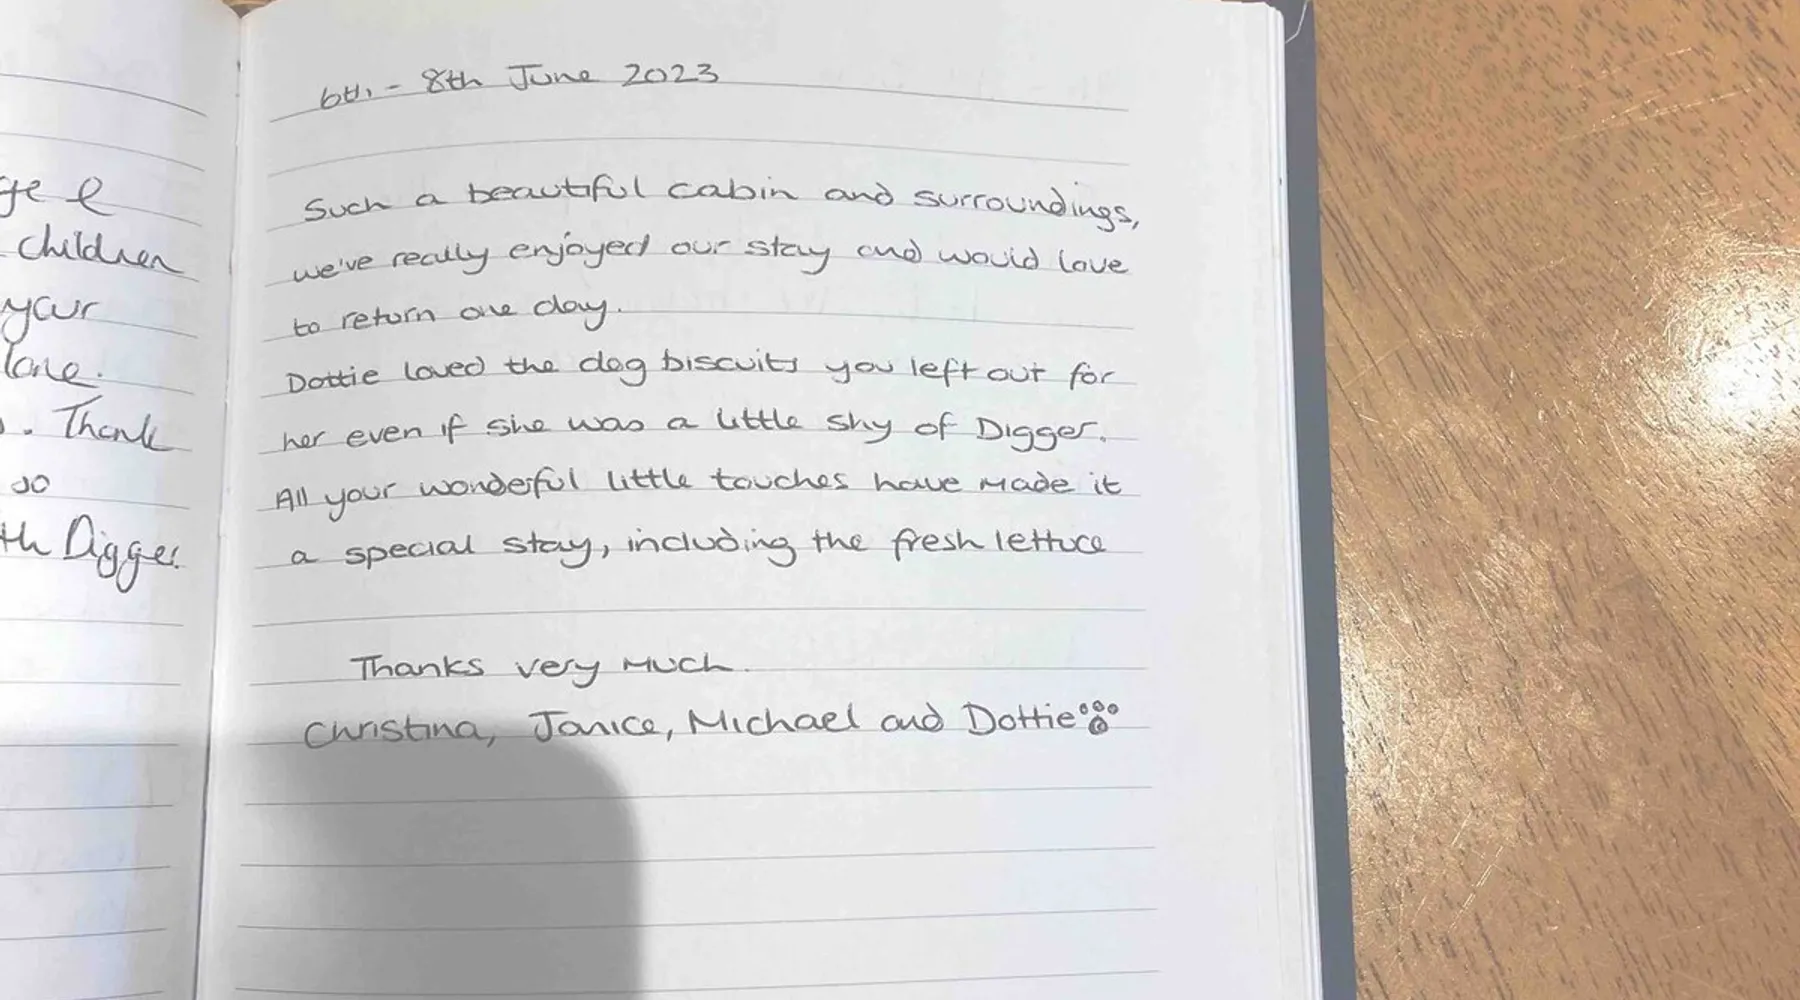 ge &
children
your
lane.
. Thank
so
th Digger.
6th - 8th June 2023
Such a beautiful cabin and surroundings,
we've really enjoyed our stay and would love
to return one day.
Dottie loved the dog biscuits you left out for
her even if she was a little shy of Digger.
All your wonderful little touches have made it
a special stay, including the fresh lettuce
Thanks very much.
Christina, Janice, Michael and Dottie